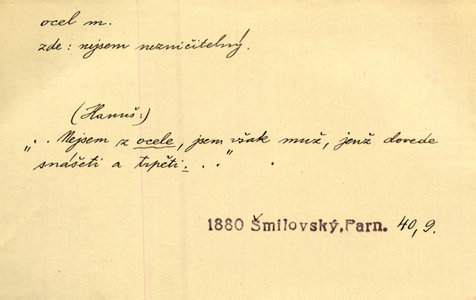 ocel m.
zde: nejsem nezničitelný.
(Hanuš:)
„. . Nejsem z ocele, jsem však muž, jenž dovede
snášeti a trpěti. . .“
1880 Šmilovský,Parn. 40,9.